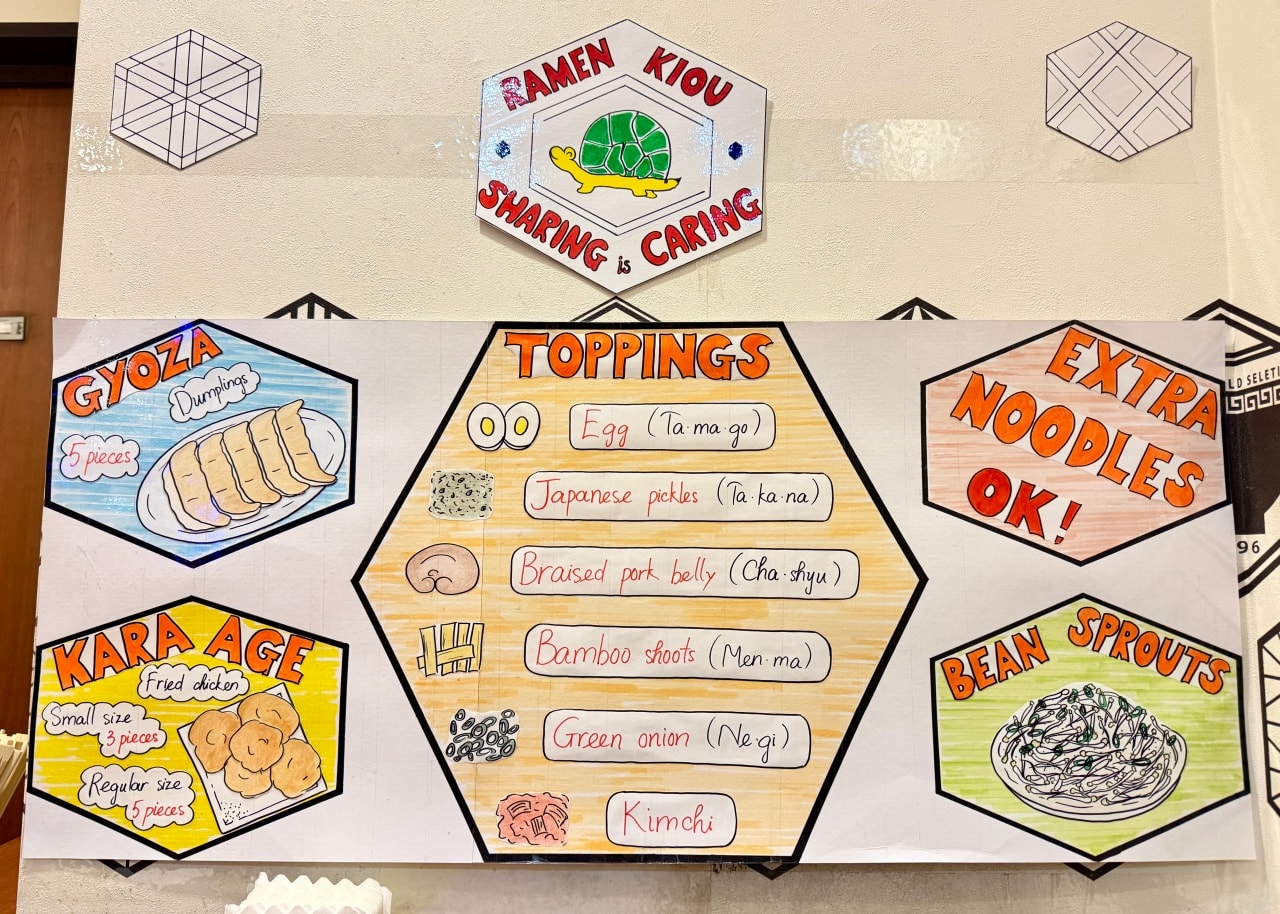 RAMEN KIOU
SHARING is CARING
GYOZA
Dumplings
5 pieces
KARA AGE
Fried chicken
Small size
3 pieces
Regular size
5 pieces
TOPPINGS
Egg (Ta·ma·go)
Japanese pickles (Ta·ka·na)
Braised pork belly (Cha·shyu)
Bamboo shoots (Men·ma)
Green onion (Ne·gi)
Kimchi
EXTRA
NOODLES
OK!
BEAN SPROUTS
96